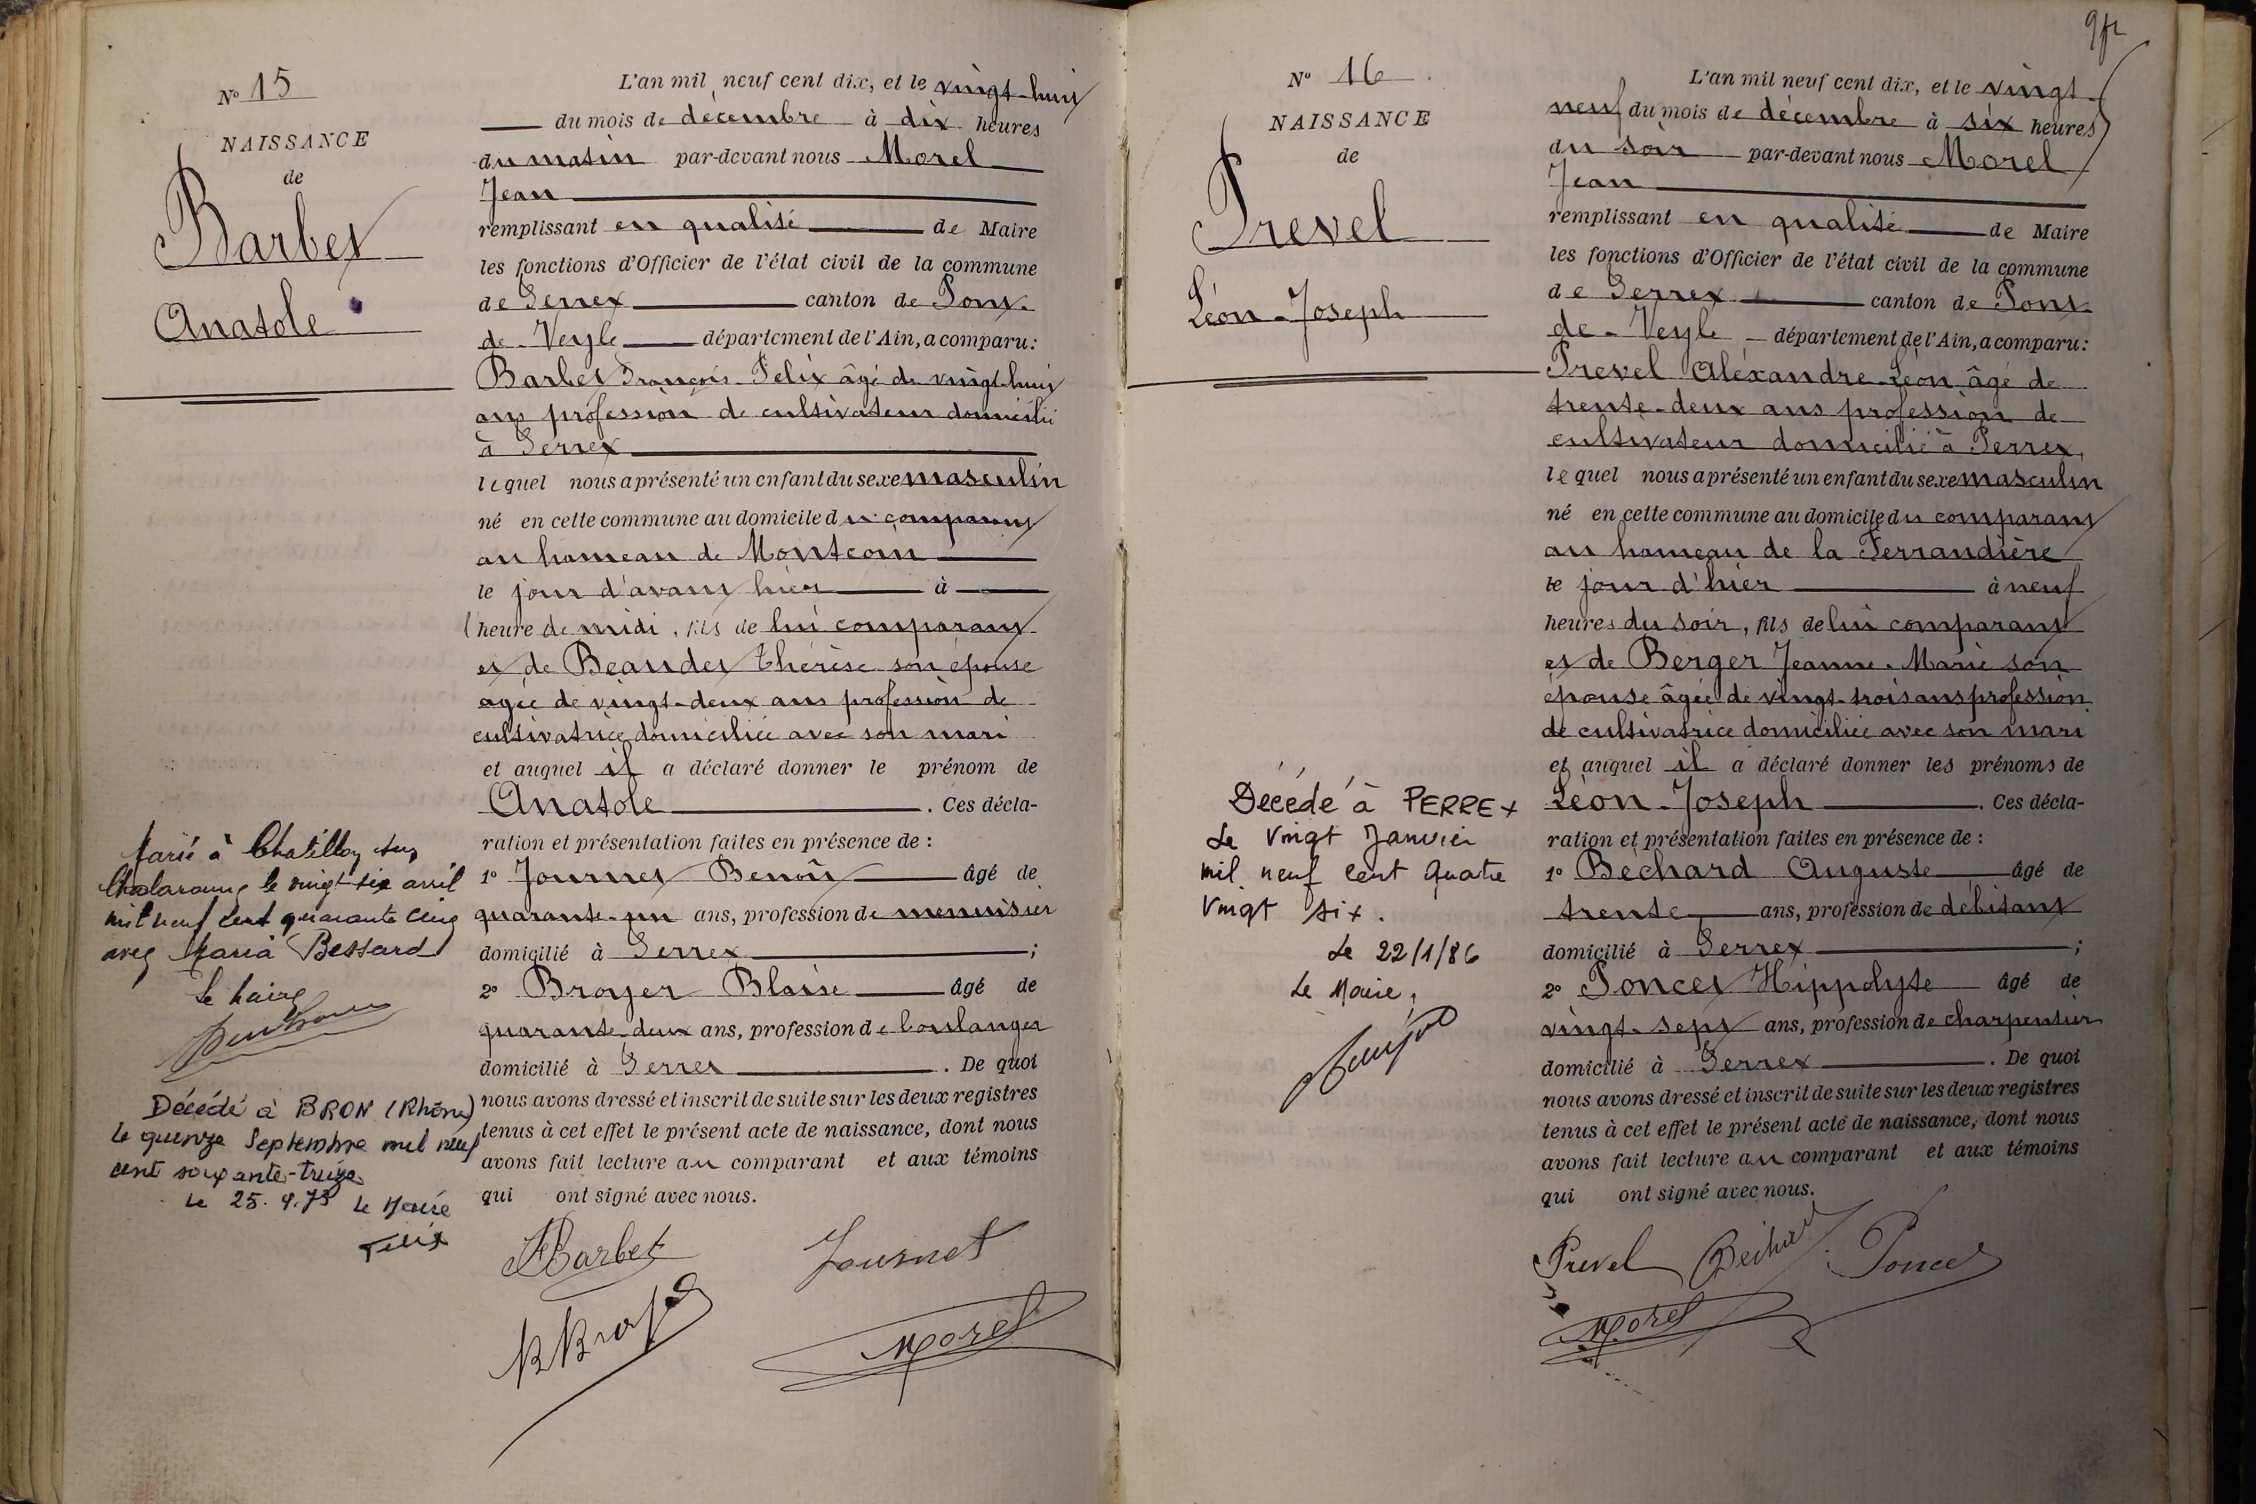 N° 15
NAISSANCE
de
Barbet
Anatole
L'an mil neuf cent dix, et le vingt-huit
du mois de décembre à dix heures
du matin par-devant nous Morel
Jean
remplissant en qualité de Maire
les fonctions d'Officier de l'état civil de la commune
de Perrex canton de Pont-
de-Veyle département de l'Ain, a comparu:
Barbet François-Felix âgé de vingt-huit
ans profession de cultivateur domicilié
à Perrex
lequel nous a présenté un enfant du sexe masculin
né en cette commune au domicile du comparant
au hameau de Montcoin
le jour d'avant hier à
1 heure de midi, fils de lui comparant
et de Beaudet Thérèse son épouse
agée de vingt-deux ans profession de
cultivatrice domiciliée avec son mari
et auquel il a déclaré donner le prénom de
Anatole . Ces décla-
ration et présentation faites en présence de :
1° Journet Benoît âgé de
quarante-un ans, profession de menuisier
domicilié à Perrex ;
2° Broyer Blaise âgé de
quarante-deux ans, profession de boulanger
domicilié à Perrex . De quoi
nous avons dressé et inscrit de suite sur les deux registres
tenus à cet effet le présent acte de naissance, dont nous
avons fait lecture au comparant et aux témoins
qui ont signé avec nous.
Marié à Chatillon sur
Chalaronne le vingt-six avril
mil neuf cent quarante cinq
avec Maria Bessard
Le Maire
Décédé à BRON (Rhône)
le quinze Septembre mil neuf
cent soixante-treize
Le 25.9.73 Le Maire
Felix
Barbet Journet
B Broyer Morel
9
N° 16
NAISSANCE
de
Prevel
Léon-Joseph
L'an mil neuf cent dix, et le vingt-
neuf du mois de décembre à six heures
du soir par-devant nous Morel
Jean
remplissant en qualité de Maire
les fonctions d'Officier de l'état civil de la commune
de Perrex canton de Pont-
de-Veyle département de l'Ain, a comparu:
Prevel Aléxandre-Léon âgé de
trente-deux ans profession de
cultivateur domicilié à Perrex,
lequel nous a présenté un enfant du sexe masculin
né en cette commune au domicile du comparant
au hameau de la Ferrandière
le jour d'hier à neuf
heures du soir, fils de lui comparant
et de Berger Jeanne-Marie son
épouse âgée de vingt-trois ans profession
de cultivatrice domiciliée avec son mari
et auquel il a déclaré donner les prénoms de
Léon-Joseph . Ces décla-
ration et présentation faites en présence de :
1° Béchard Auguste âgé de
trente ans, profession de débitant
domicilié à Perrex ;
2° Poncet Hippolyte âgé de
vingt-sept ans, profession de charpentier
domicilié à Perrex . De quoi
nous avons dressé et inscrit de suite sur les deux registres
tenus à cet effet le présent acte de naissance, dont nous
avons fait lecture au comparant et aux témoins
qui ont signé avec nous.
Décédé à PERREX
Le Vingt Janvier
mil neuf cent Quatre
Vingt Six.
Le 22/1/86
Le Maire,
Prevel Béchard Poncet
Morel